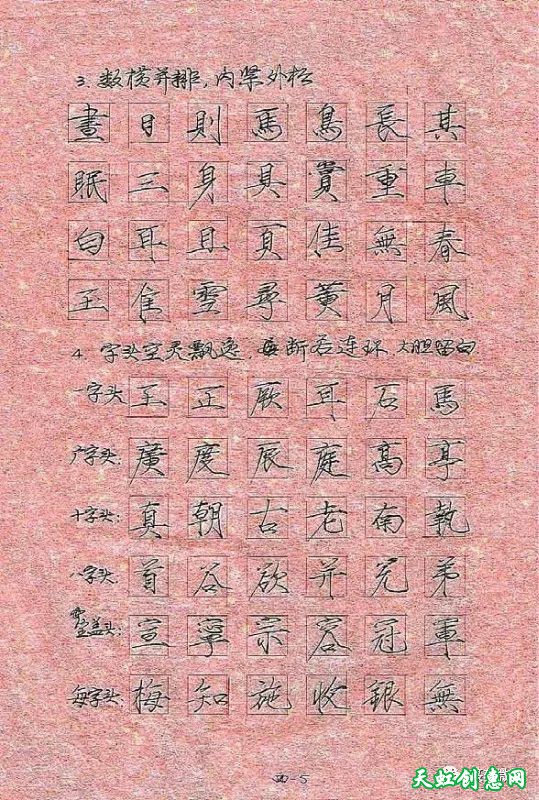 3.数横并排,内紧外松
畫日則馬鳥長其
眠三身具賞重車
白耳且頁佳無春
王隹雪尋黃月風
4.字头空灵飘逸,每断若连环,大胆留白
一字头:王正厥耳石馬
广字头:廣度辰庭高亭
十字头:真朝古老南執
八字头:首谷欲并兌弟
宝盖头:宣寧宗容冠軍
每字头:梅知施收銀無
四-5
天虹创意网